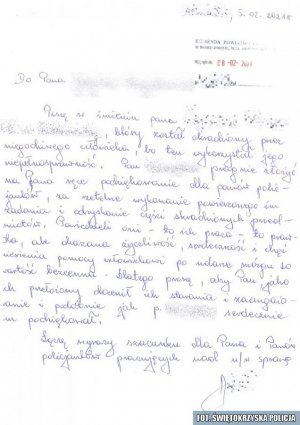 5.02.2021r
KOMENDA POWIATOWA
08-02-2021
Do Pana
Piszę w imieniu pana
, który został okradziony przez
niegodziwego człowieka, bo ten wykorzystał jego
niepełnosprawność. Pan pragnie złożyć
na Pana ręce podziękowanie dla panów policjantów,
za rzetelne wykonanie powierzonego im
zadania i odzyskanie części skradzionych przedmiotów.
Powiedzieli oni - to ich praca - to prawda,
ale okazana życzliwość, serdeczność i chęć
niesienia pomocy człowiekowi po udarze mózgu są
wartość bezcenna. Dlatego proszę, aby Pan, jako
ich przełożony docenił ich starania i zaangażowanie
i podobnie jak p. serdecznie
im podziękował.
Łączę wyrazy szacunku dla Pana i Panów
policjantów pracujących nad w/w sprawą
FOT. ŚWIĘTOKRZYSKA POLICJA